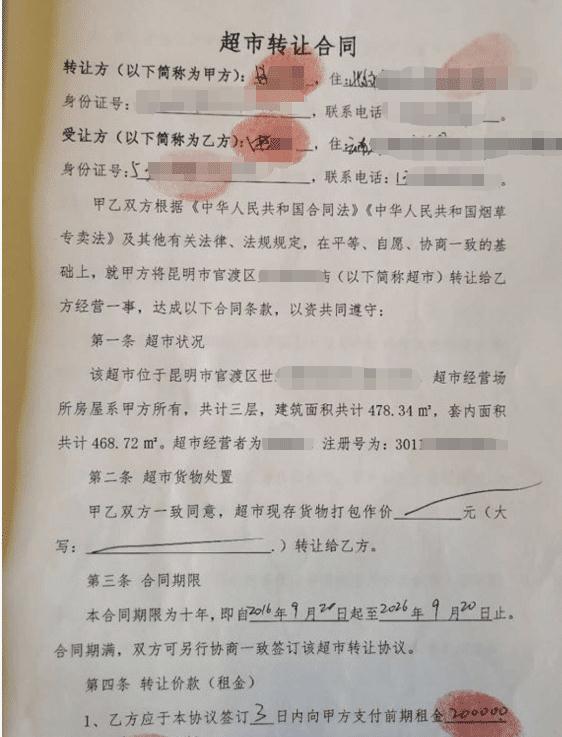 超市转让合同
转让方（以下简称为甲方）： ，住：
身份证号： ，联系电话 。
受让方（以下简称为乙方）： ，住
身份证号：5 ，联系电话：1 。
甲乙双方根据《中华人民共和国合同法》《中华人民共和国烟草
专卖法》及其他有关法律、法规规定，在平等、自愿、协商一致的基
础上，就甲方将昆明市官渡区 （以下简称超市）转让给乙
方经营一事，达成以下合同条款，以资共同遵守：
第一条 超市状况
该超市位于昆明市官渡区世 超市经营场
所房屋系甲方所有，共计三层，建筑面积共计 478.34 ㎡，套内面积
共计 468.72 ㎡。超市经营者为 注册号为：3011
第二条 超市货物处置
甲乙双方一致同意，超市现存货物打包作价 元（大
写： .）转让给乙方。
第三条 合同期限
本合同期限为十年，即自2016年9月20日起至2026年9月20日止。
合同期满，双方可另行协商一致签订该超市转让协议。
第四条 转让价款（租金）
1、乙方应于本协议签订3日内向甲方支付前期租金200000